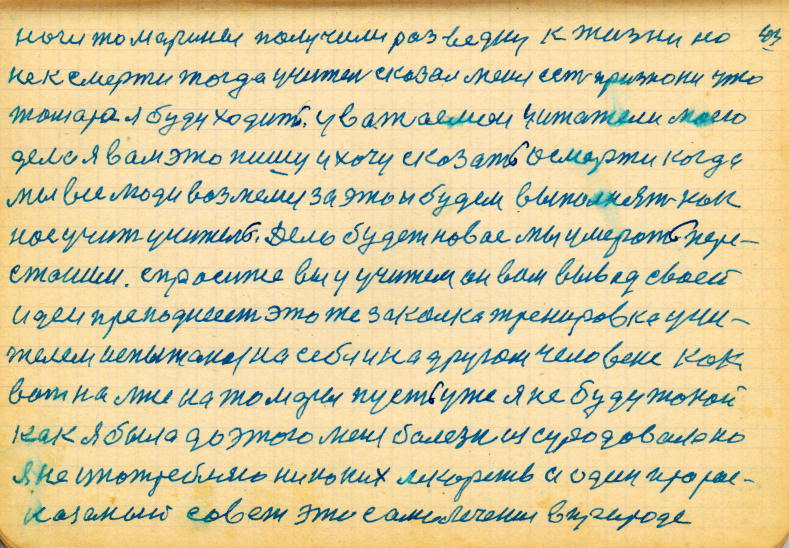 ночи то мы получили разведку к жизни но 43
не к смерти тогда учител сказал мени ест признони что
я буду ходить. уважаемои читатели моего
дела я вам это пишу и хочу сказать о смерти когда
мы все люди возмемси за это и будем выполнят как
нас учит учитель. Дело будет новае мы умерать пере-
станим. спросите вы у учителя он вам вывод своей
идеи преподнесет это же закалка тренировка учи-
телем испытано на себя и на другом человеке как
вот на мне на том дни пусть уже я не буду токой
как я была до этого мени болезн изуродовала но
я не употребляю ниноких лекарств а один
казаный совет это самолечения в природе